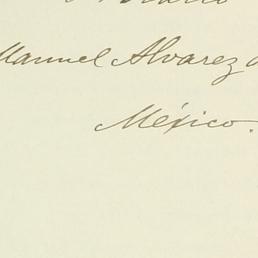 Manuel Alvarez
México.